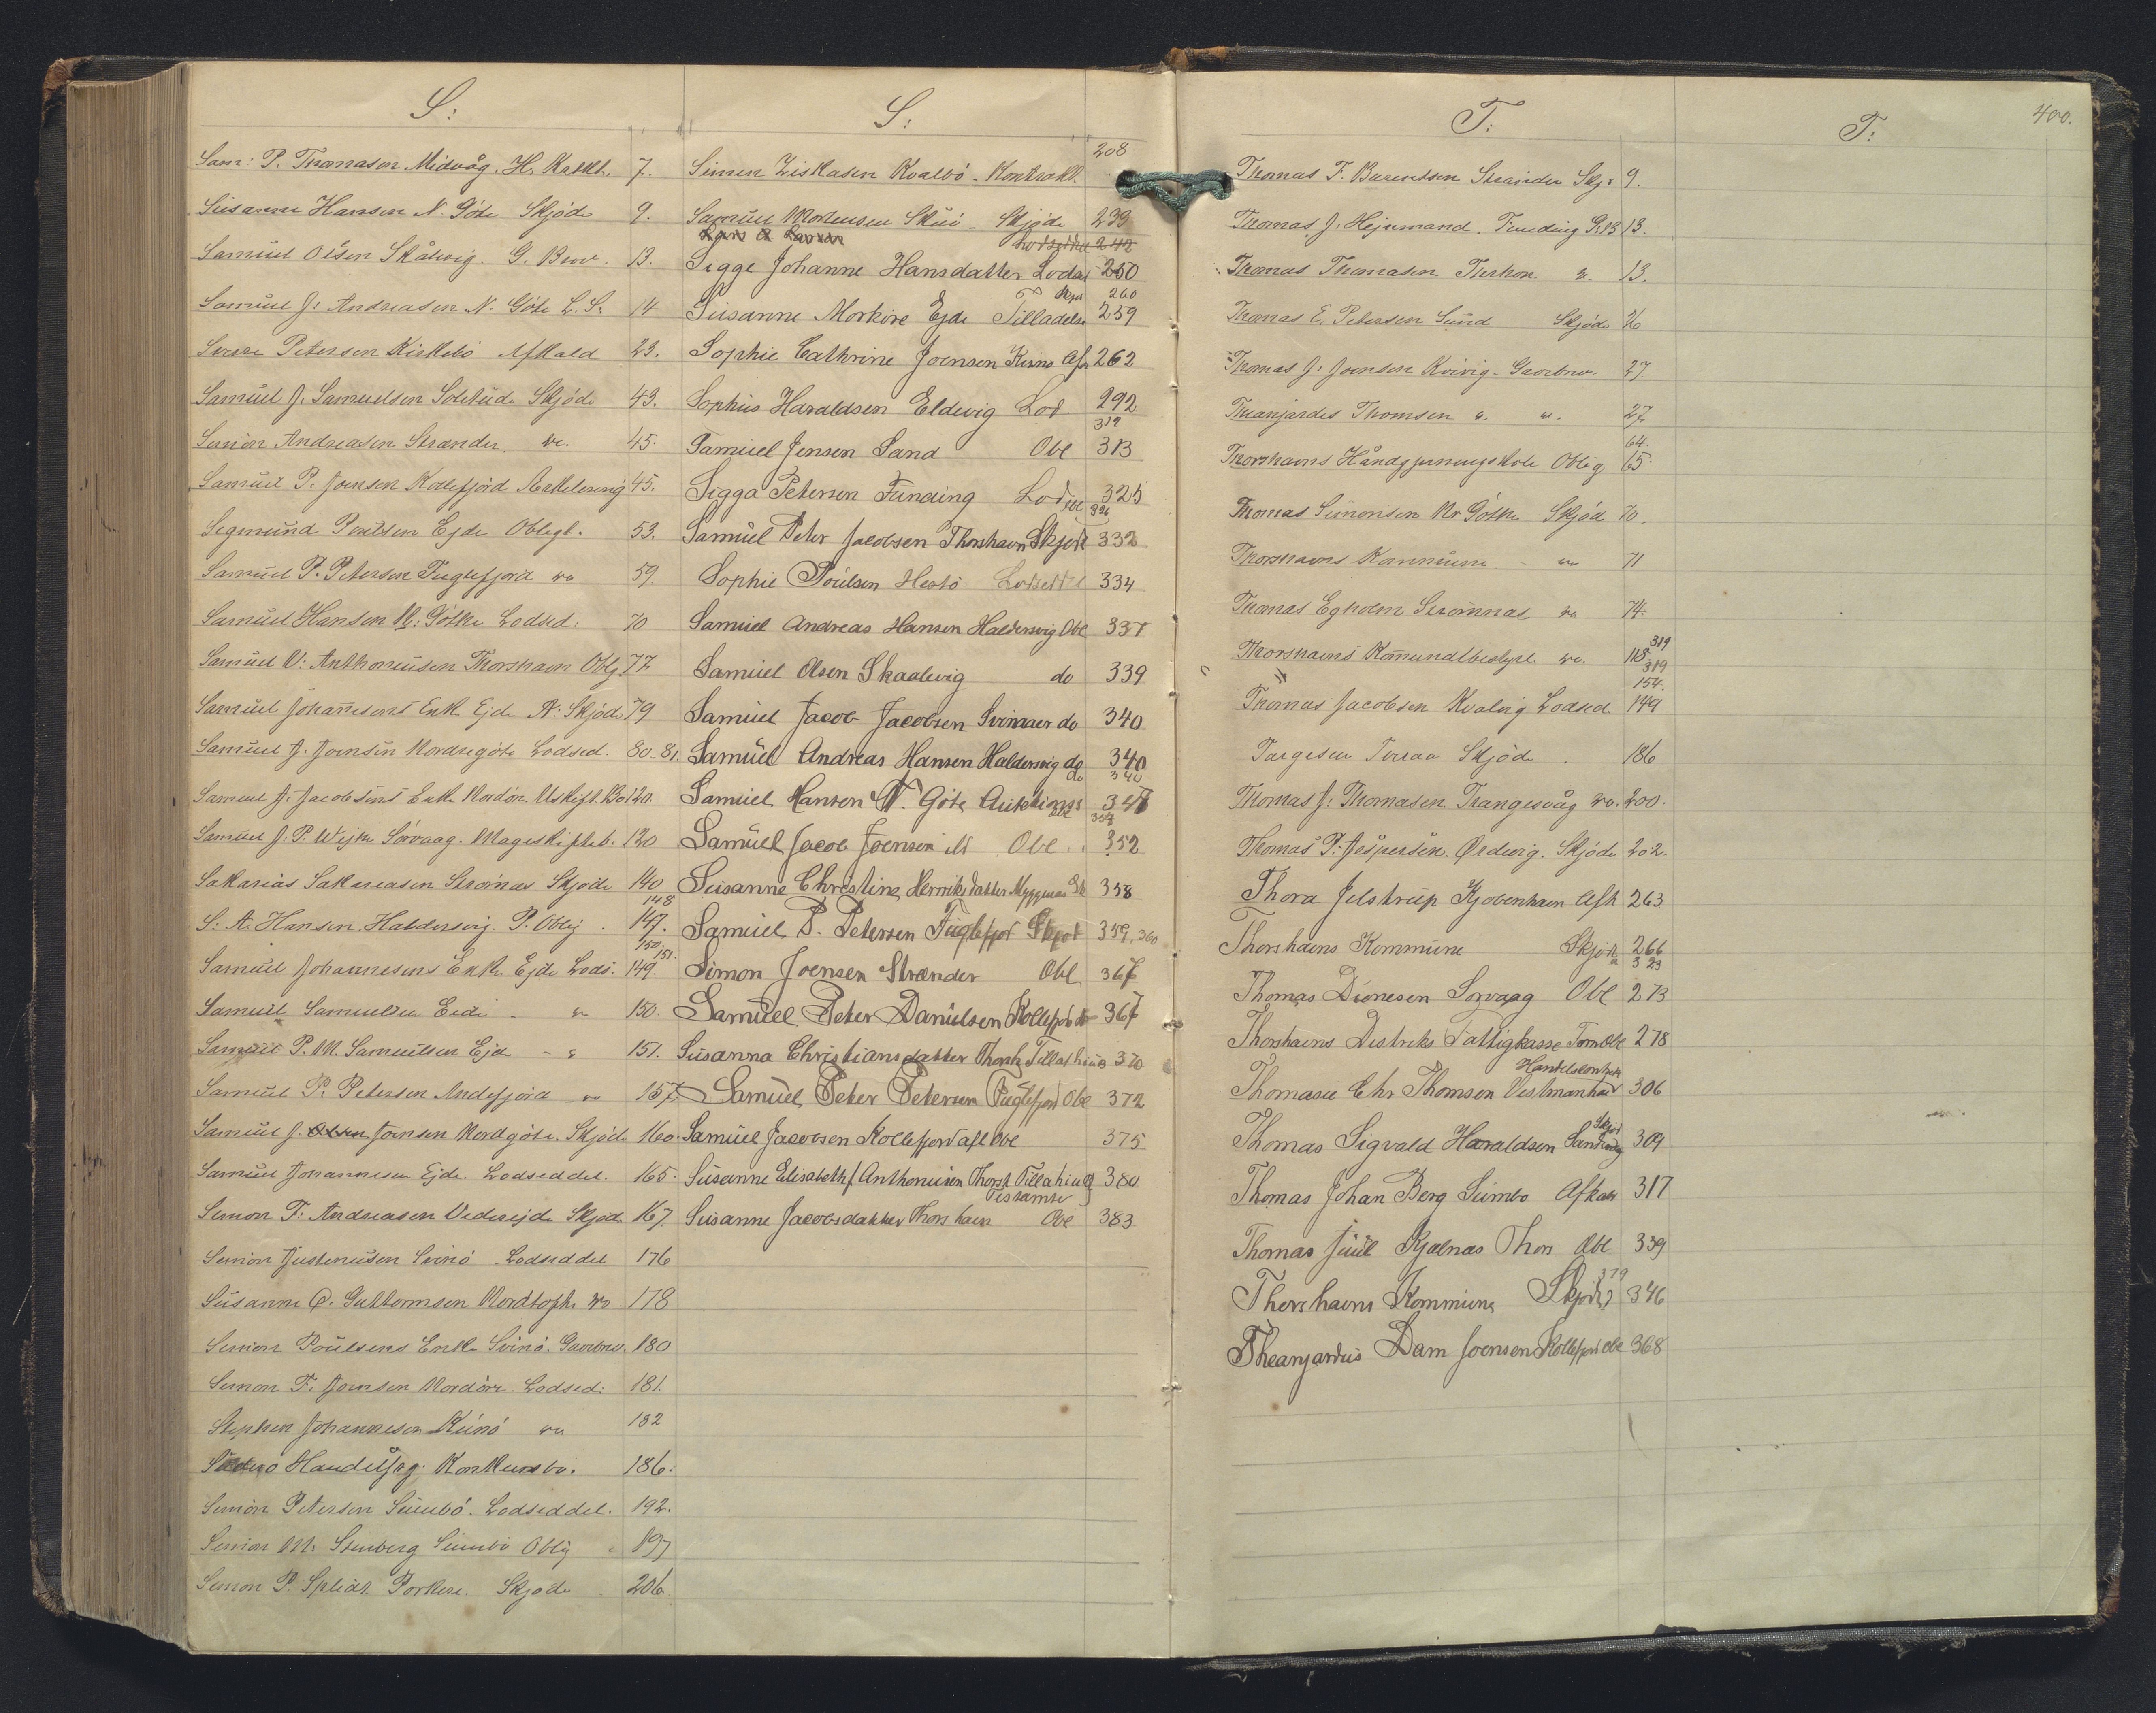 S:
Sam: P. Thomasen Midvåg. H. Kntkt. 7.
Susanne Hansen N. Göte Skjöde 9.
Samuel Olsen Skålevig. G. Brev. 13.
Samuel J. Andreasen N. Göte L. S. 14
Petersen Kirkebö Afkald 23.
Samuel J. Samuelsen Skjöde 43.
Simon Andreasen Strender do. 45.
Samuel P. Joensen Kollefjord 45.
Segmund Poulsen Ejde Obligt. 53.
Samuel P. Petersen Fuglefjord do 59
Samuel Hansen N: Göthe Lodsed: 70
Samuel V: Anthoniusen Thorshavn Oblg 77
Samuel Johannesens Enke Ejde A: Skjöde 79
Samuel J. Joensen Nordregöte Lodsed. 80-81.
Samuel J. Jacobsens Enke Nordör. Uskift. Bo 120.
Samuel J. P. Wejhe Sörvaag. Mageskifteb. 120
Sakarias Sakariasen Strömnæs Skjöde 140
148
S: A. Hansen Haldersvig. P. Oblig. 147.
150. 151.
Samuel Johannesens Enke Ejde Lods. 149.
Samuel Samuelsen Eide - do 150.
Samuel P. M. Samuelsen Ejde - " 151.
Samuel P. Petersen Andefjord do 157
Samuel J. Olsen Joensen Nordgöte. Skjöde 160.
Samuel Johannesen Ejde. Lodseddel. 165.
Simon F. Andreasen Viderejde Skjöde 167.
Simon Justenusen Svinö Lodseddel 176
Susanne O. Guttormsen Nordtofte do 178
Simon Poulsens Enke Svinö. Gavebrev. 180
Simon F. Joensen Nordöre Lodsed: 181.
Stephen Johannesen Kunö do 182
Handelsfrg. Konkursbo. 186.
Simon Petersen Sumbö. Lodseddel. 192.
Simon M. Stenberg Sumbö Oblig 197
Simon P. Splidt Porkere. Skjöde 206.
S:
208
Simon Ziskasen Kvalbö - Kontrakt.
Samuel Mortensen Skuö - Skjöde 239
Lars Larsen Lodseddel 242
Sigge Johanne Hansdatter Lodsd 250
Skjøde 260
Susanne Morköre Ejde Tilladelse 259
Sophie Cathrine Joensen Kuno Afk 262
Sophus Haraldsen Eldevig Lod. 292
319
Samuel Jensen Sand Obl 313
Sigga Petersen Funding Lodse 325
326
Samuel Peter Jacobsen Thorshavn Skjøde 332
Sophie Poulsen Hestö Lodseddel 334
Samuel Andreas Hansen Haldersvig Obl 337
Samuel Olsen Skaalevig do 339
Samuel Jacob Jacobsen Svinaaer do 340
Samuel Andreas Hansen Haldersvig do 340
do 340
Samuel Hansen N. Göte Auktions 347
Samuel Jacob Joensen ds Obl. 352
Susanne Christine Henriksdatter Myggenæs Sk 358
Samuel P. Petersen Fuglefjor Skjöt 359, 360
Simon Joensen Strænder Obl 367
Samuel Peter Danielsen Kollefjor do 367
Susanna Christiansdatter Thorsh Tillathius 370
Samuel Peter Petersen Fuglefjord Obl 372
Samuel Jacobsen Kollefjord afl Obl 375
Susanne Elisabeth f Anthonisen Thorsh 380
Testamte
Susanne Jacobsdatter Thorshavn Obl 383
T:
Thomas F. Barentsen Strænder Skj: 9.
Thomas J. Hejnmand. Funding G.B 13.
Thomas Thomasen ". 13.
Thomas E. Petersen Sund Skjöde 26
Thomas J. Joensen Kvivig. Gavebrev. 27
Theanjardes Thomsen ". ". 27.
64.
Thorshavns Håndgjerningskole Oblig 65.
Thomas Simonsen Nr Göthe Skjöde 70.
Thorshavns Kommune - do 71
Thomas Egholm Strömnæs do 74.
319
Thorshavns Komunalbestyre. do. 118
319
154.
Thomas Jacobsen Kvalvig Lodsed 149
Torgesen Skjöde 186
Thomas J. Thomasen Trangesvåg do. 200.
Thomas P. Jespersen. Ørdevig. Skjöde 202.
Thora Jelstrup Kjøbenhavn Afk 263
Thorshavns Kommune Skjöde 266
323
Thomas Dionesen Sorvaag Obl 273
Thorshavns Distrikts Fattigkasse Obl 278
Handelskontrakt
Thomasie Chr Thomsen Vestmanhav 306
Skjød
Thomas Sigvald Haraldsen Sandvig 309
Thomas Johan Berg Sumbo Afkald 317
Thomas Juul Kjælnæs Thors Obl 339
379
Thorshavns Kommune Skjøde 346
Theanjardus Dam Joensen Kollefjord Obl 368
T:
400.